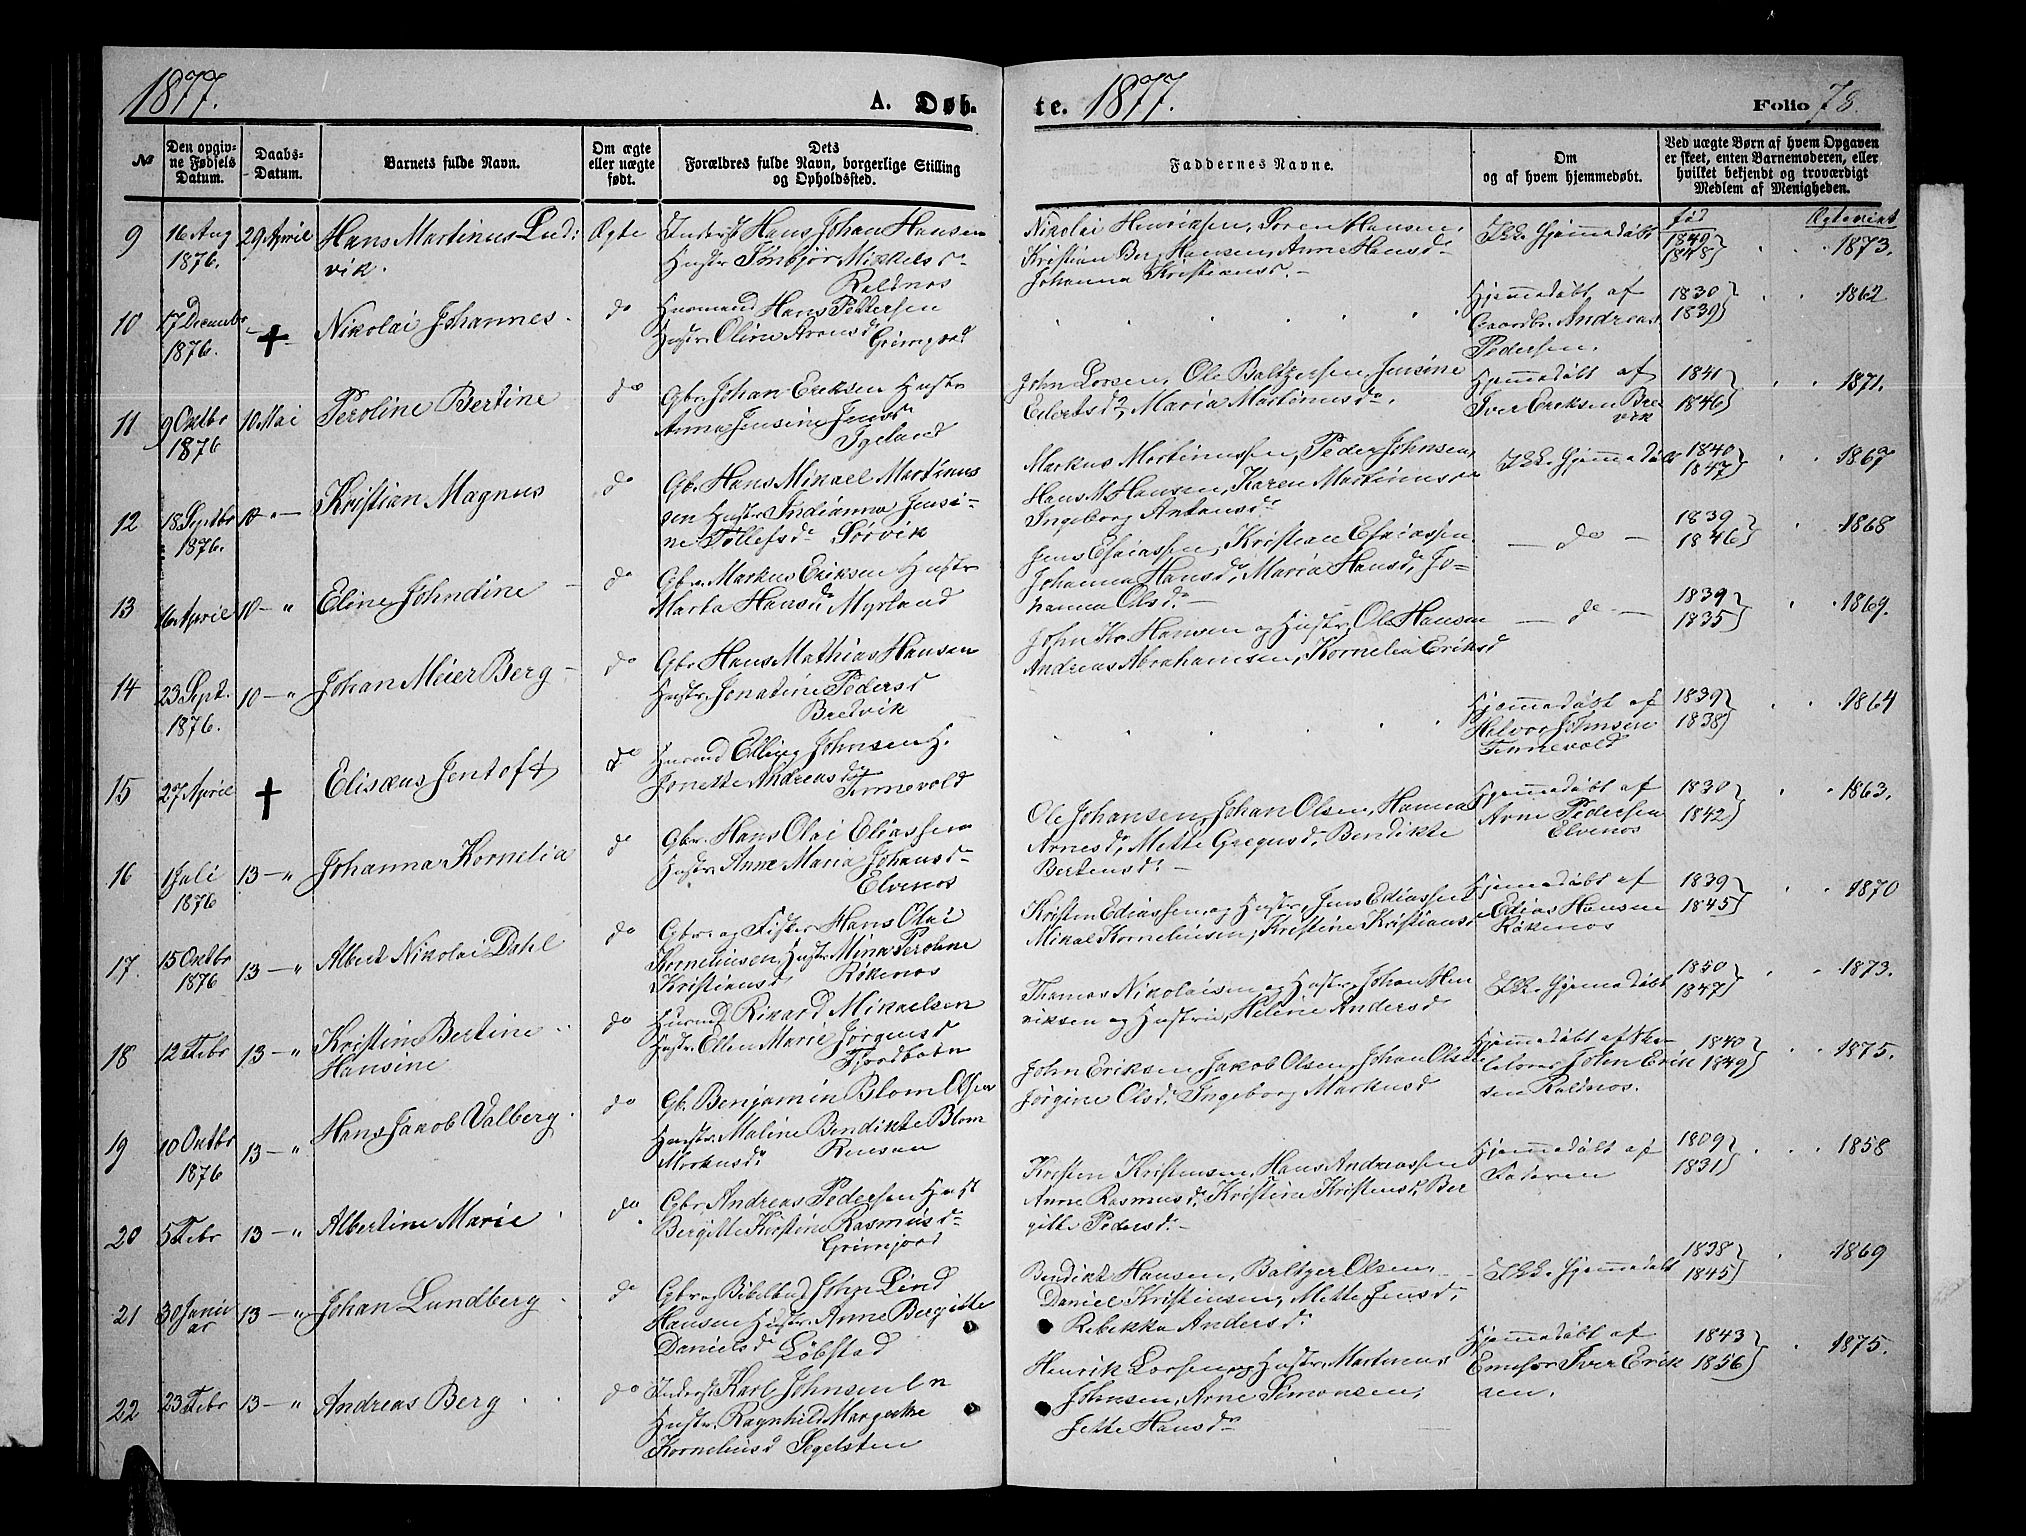 1877.
A. Døb-
te. 1877.
Folio 78.
No
Den opgiv-
ne Fødsels
Datum.
Daabs-
Datum.
Barnets fulde Navn.
Om ægte
eller uægte
født.
Dets
Forældres fulde Navn, borgerlige Stilling
og Opholdssted.
Faddernes Navne.
Om
og af hvem hjemmedøbt.
Ved uægte Børn af hvem Opgaven
er skeet, enten Barnemoderen, eller
hvilket bekjendt og troværdigt
Medlem af Menigheden.
født
Ægteviet
9 16 Aug 1876. 29 April Hans Martinus Lud:
vik. Ægte
Inderst Hans Johan Hansen
Hustr Tønbjør Mikkelsd.
Roldnos
Nikolai Henriksen, Søren Hansen,
Kristian Berg Hansen, Anne Hansd
Johanna Kristiansd.
Ikke Hjemmedøbt
1849
1848 1873.
10 17 December 1876. † Nikolai Johannes. do
Husmand Hans Pettersen
Hustr. Olina Aronsd Grimsjord
Hjemmedøbt af
Gaardbr. Andreas
Pedersen.
1830
1839 1862
11 9 Oktbr 1876 10 Mai Peroline Bertine do
Gbr. Johan Eriksen Hustr
Anna Jensine Jensd
Igeland
John Lorsen, Ole Baltzersen, Jensine
Eilertsd, Maria Martinusd.
Hjemmedøbt af
Iver Eriksen Bre
vik
1841
1846 1871.
12 18 Septbr 1876. 10 - Kristian Magnus do
Gbr. Hans Mikael Martinus
sen Hustr Indianna Jensi-
ne Tollefsd. Sørvik
Markus Martinussen, Peder Johnsen,
Hans M Hansen, Karen Martinusd
Ingeborg Antonsd.
Ikke Hjemmedøbt
1840
1847 1867
13 16 April 10 - " Eline Johndine do
Gbr. Markus Eriksen Hustr
Marta Hansd Myrland
Jens Esaiassen, Kristian Esaiassen
Johanna Hansd, Maria Hansd, Jo-
hanna Olsd.
- do -
1839
1846 1868
14 23 Sept. 1876. 10 - " Johan Meier Berg do
Gbr Hans Mathias Hansen
Hustr. Jonatine Pedersd
Bredvik
John Kr. Hansen og Hustr, Ole Hansen
Andreas Abrahamsen, Kornelia Eriksd
- do -
1839
1835 1869.
15 27 April † Elisæus Jentoft do
Husmd Elling Johnsen H.
Jonette Andreasd
Tennevold
Hjemmedøbt af
Halvor Johnsen
Tennevold
1839
1838 1864
16 1 Juli 1876 13 - " Johanna Kornelia do
Gbr. Hans Olai Eliassen
Hustr. Anne Maria Johansd
Elvenos
Ole Johansen, Johan Olsen, Hanna
Arnesd, Mette Gregusd, Bendikte
Bertensd.
Hjemmedøbt af
Arne Pedersen
Elvenos
1830
1842 1863.
17. 15 Oktbr 1876 13 - " Albert Nikolai Dahl do
Gbr og Fisker Hans Olai
Korneliussen, Hustr Mina Peroline
Kristiansd Røkenos
Kristen Ediassen og Hustr, Jens Ediassen
Mikal Korneliusen, Kristine Kristiansd
Hjemmedøbt af
Edias Hansen
Røkenos
1839
1845 1870
18 12 Febr 13 - " Kristine Bertine
Hansine do
Husmd Rikard Mikaelsen
Hustr. Ellen Marie Jørgensd
Fjordbotn
Thomas Nikolaisen og Hustr, Johan Hen
riksen og Hustru, Helene Andersd
Ikke Hjemmedøbt
1850
1847 1873.
19 10 Oktbr 1876 13 - " Hans Jakob Valberg do
Gb. Benjamin Blom Olsen
Hustr. Maline Bendikte Blom
Markusd. Rensaa
John Eriksen, Jakob Olsen, Johan Olsen
Jørgine Olsd, Ingeborg Markusd
Hjemmedøbt af Sko-
lelærer John Erik
sen Roldnos.
1840
1849 1875.
20 5 Febr 13 - " Albertine Marie do
Gbr. Andreas Pedersen Hust
Bergitte Kirstine Rasmusd
Grimsjord
Kristen Kristensen, Hans Andreassen
Anne Rasmusd, Kristine Kristensd, Ber
gitte Pedersd.
Hjemmedøbt af
Faderen
1809
1831 1858
21 30 Janu
ar 13 - " Johan Lundberg do
Gbr og Bibelbud John Lind
Hansen Hustr. Anne Bergitte
Danielsd Løbstad
Bendikt Hansen, Baltzer Olsen,
Daniel Kristensen, Mette Jensd,
Rebekka Andersd.
Ikke Hjemmedøbt
1838
1845 1869
22 23 Febr 13 - " Andreas Berg do
Inderst Karl Johnsen
Hustr. Ragnhild Margrethe
Korneliusd Segelsten
Henrik Lorsen og Hustr. Martinus
Johnsen, Arne Simonsen,
Jette Hansd
Hjemmedøbt af
Iver Erik
sen.
1843
1856 1875.